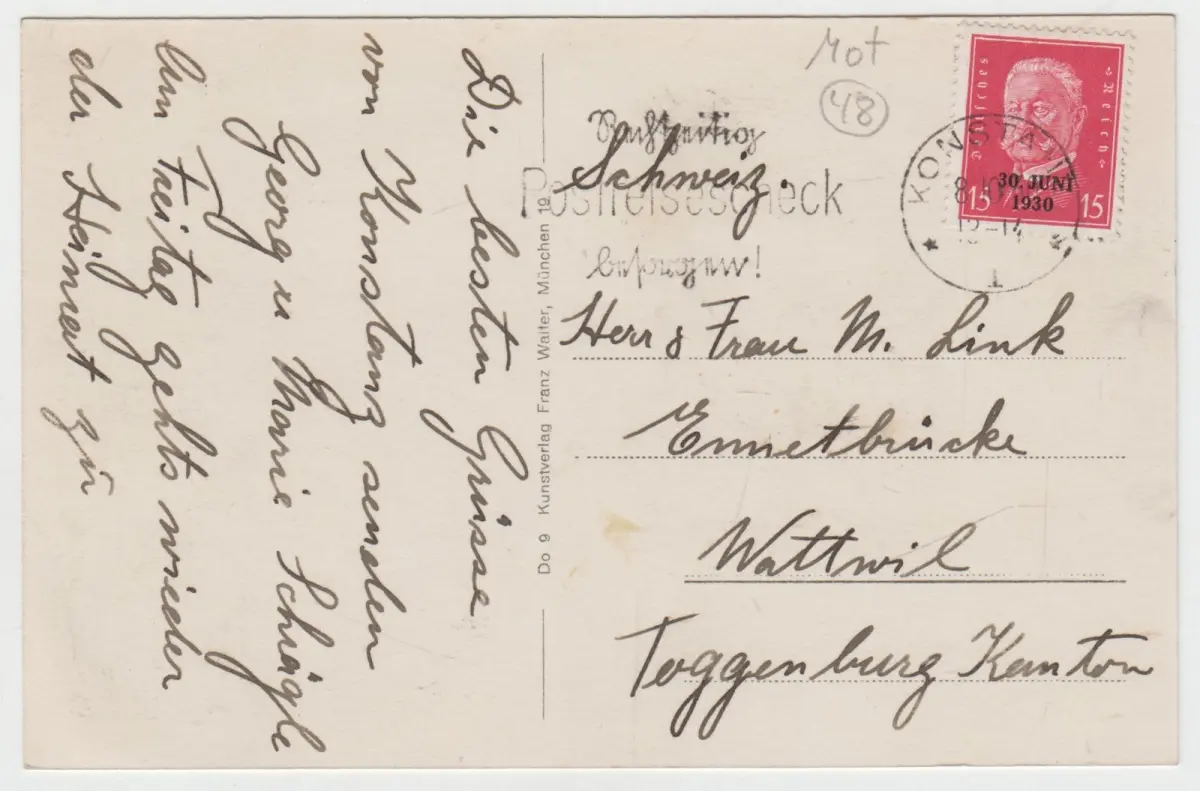 Die besten Grüsse
von Konstanz senden
Georg u Marie Schrägle
Am Freitag gehts wieder
der Heimat zu
Do 9 Kunstverlag Franz Walter, München 19
Mot
48
Rechtzeitig
Postreisescheck
besorgen!
Deutsches Reich
15 15
30. JUNI
1930
KONSTANZ
1
Schweiz.
Herr & Frau M. Link
Emmetbrücke
Wattwil
Toggenburg Kanton